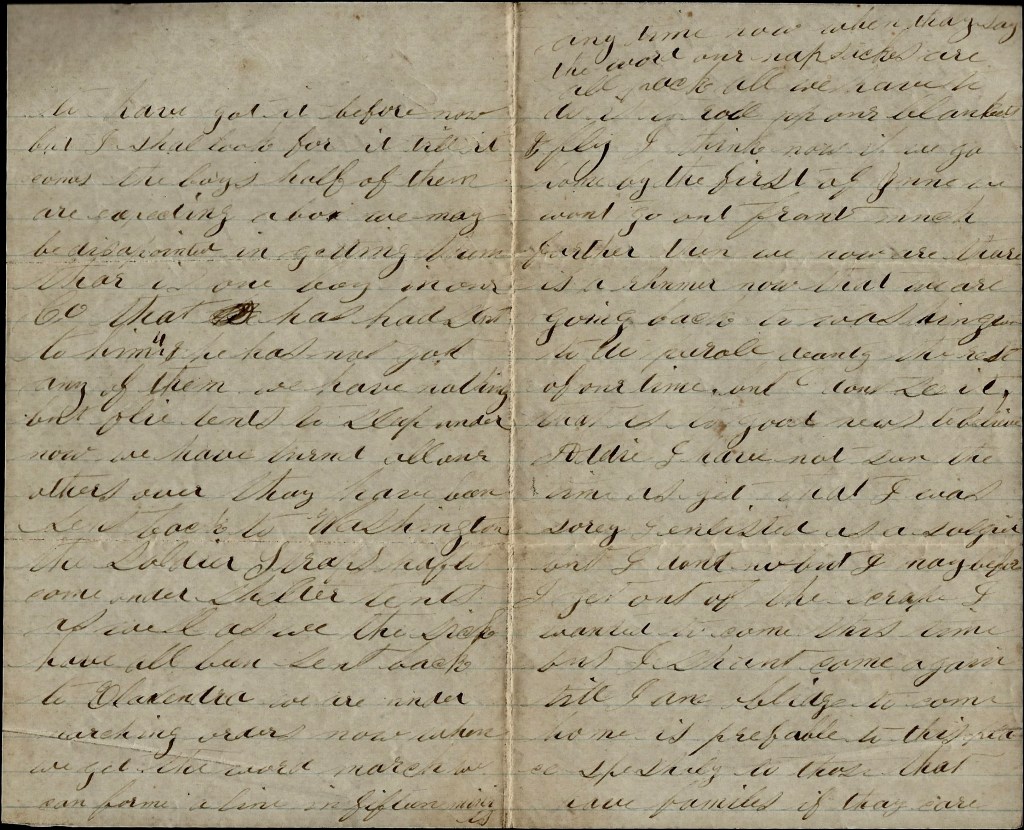 to have got it before now
but I shal look for it till it
comes the boys half of them
are expecting a box we may
be disapointed in getting them
thar is one boy in our
Co that has had sent
to him 4 he has not got
any of them we have nothing
but tents to sleep under
now we have turnd all our
others over thay have been
sent back to Washington
the Soldier
come under Shelter tents
as well as we the sick
have all been sent back
to Alaxentra we are under
marching orders now when
we get the word march we
can forme a line in fifteen
any time now when thay say
the word our napsacks are
all pack all we have to
do is to roll up our blankets
& fly I think now if we go
home by the first of June we
wont go out front much
farther tun we now are thare
is a rhumer now that we are
going back to Washington
to do duty the rest
of our time but I dont see it,
that is to good news to believe
Addie I have not sean the
time as yet that I was
sorey I enlisted as a soldier
but I dont no but I may before
I get out of the scrape I
wanted to come this time
but I shant come again
till I am oblidge to come
home is prefable to this
espesialy to those that
have familes if thay care